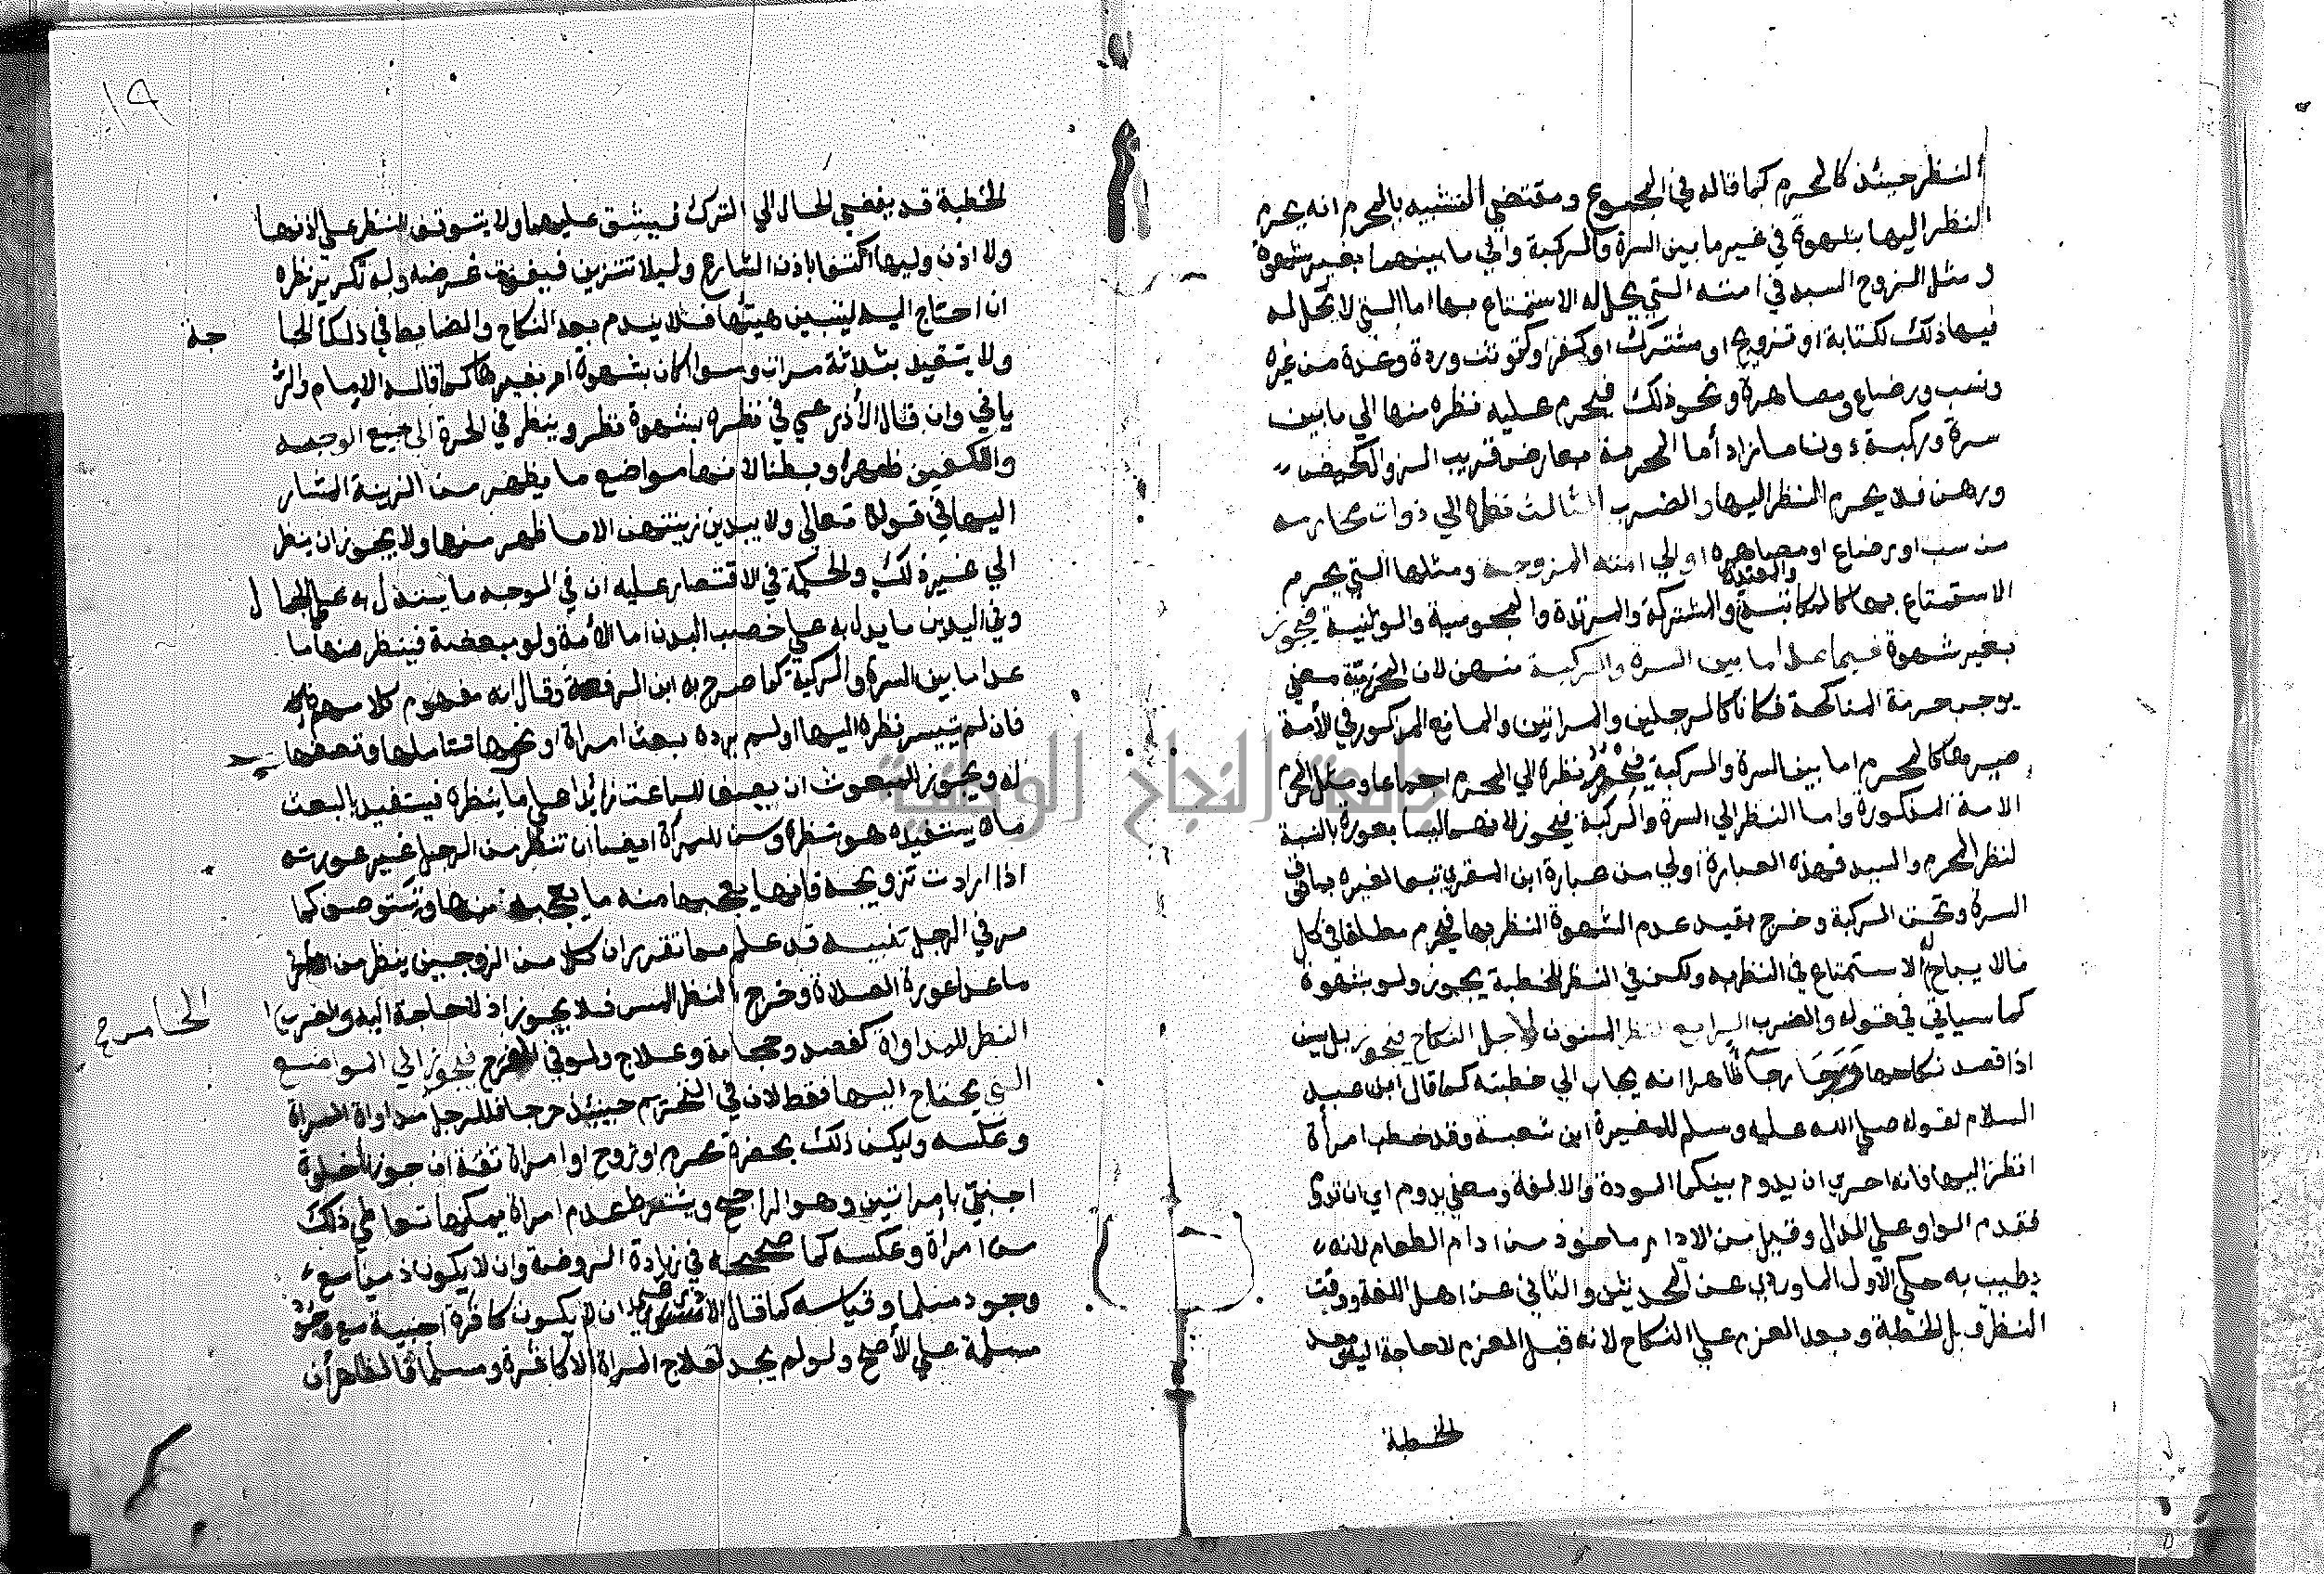 النظر حينئذ كالمحرم كما قاله في المجموع ومقتضي التشبيه بالمحرم انه يحرم
النظر اليها بشهوة في غير ما بين السرة والركبة والي ما بينهما بغير شهوة
ومثل الزوج السيد في امته التي يحل له الاستمتاع بها اما التي لا يحل له
فيها ذلك لكتابة او تزويج او مشترك او كفر او كتوثن وردة وعدة من غيره
ونسب ورضاع ومصاهرة ونحو ذلك فيحرم عليه نظره منها الي ما بين
سرة وركبة دون ما زاد أما المحرمة بعارض قريب الزوال كحيض
ورهن فلا يحرم النظر اليها والضرب الثالث نظره الي ذوات محارمه
من نسب او رضاع او مصاهرة او الي امته المزوجة ومثلها التي يحرم
والمعتدة
الاستمتاع بها كالمكاتبة والمشتركة والمرتدة والمجوسية والوثنية فيجوز
بغير شهوة فيما عدا ما بين السرة والركبة منهن لان المحرمية معني
يوجب حرمة المناكحة فكانا كالرجلين والمراتين والمانع المذكور في الأمة
صيرها كالمحرم اما بين السرة والركبة فيحرم نظره الي المحرم اجماعا ومثل المحرم
الامة المذكورة واما النظر الي السرة والركبة فيجوز لانهما ليسا بعورة بالنسبة
لنظر المحرم والسيد فهذه العبارة أولي من عبارة ابن المقري تبعا لغيره بما فوق
السرة وتحت الركبة وخرج بقيد عدم الشهوة النظر بها فيحرم مطلقا في كل
مالا يباح الاستمتاع في النظر به ولكن في النظر للخطبة يجوز ولو بشهوة
كما سياتي في قوله والضرب الرابع النظر المسنون لاجل النكاح فيجوز بل يسن
اذا قصد نكاحها ورجا رجاء ظاهرا انه يجاب الي خطبته كما قال ابن عبد
السلام لقوله صلي الله عليه وسلم للمغيرة ابن شعبة وقد خطب امرأة
انظر اليها فانه احري ان يدوم بينكما المودة والالفة ومعني يدوم اي ان تودى
فقدم الواو علي الدال وقيل من الادام ماخوذ من ادام الطعام لانه
يطيب به حكي الاول الماوردي عن المحدثين والثاني عن اهل اللغة ووقت
النظر قبل الخطبة وبعد العزم علي النكاح لانه قبل العزم لا حاجة اليه وبعد
الخطبة
١٩
الخطبة قد يفضي الحال الي الترك فيشق عليهما ولا يتوقف النظر علي الاذنها
ولا اذن وليها اكتفا باذن الشارع وليلا تتزين فيفوت غرضه وله تكرير نظره
ان احتاج اليه ليتبين هيئتها فلا يندم بعد النكاح والضابط في ذلك الحا
جة
ولا يتقيد بثلاثة مرات وسوا كان بشهوة ام بغيرها كما قاله الامام والرو
ياني وان قال الأذرعي في نظره بشهوة نظر وينظر في الحرة الي جميع الوجه
والكفين ظهرا وبطنا لانها مواضع ما يظهر من الزينة المشار
اليها في قوله تعالى ولا يبدين زينتهن الا ما ظهر منها ولا يجوز ان ينظر
الي غير ذلك والحكمة في الاقتصار عليه ان في الوجه ما يستدل به علي الجمال
وفي اليدين ما يدل به علي خصب البدن اما الأمة ولو مبعضة فينظر منها ما
عدا ما بين السرة والركبة كما صرح به ابن الرفعة وقال انه مفهوم كلامهم
فان لم يتيسر نظره اليها او لم يرده بعث امراة او نحوها تتاملها وتصفها
له ويجوز للمبعوث ان يصف للباعث زائدا علي ما ينظره فيستفيد بالبعث
مالا يستفيده هو بنظره وسن للمراة ايضا ان تنظر من الرجل غير عورته
اذا ارادت تزويجه فانها يعجبها منه ما يعجبه منها وتستوصف كما
مر في الرجل تنبيه قد علم مما تقرر ان كلا من الزوجين ينظر من الاخر
ما عدا عورة الصلاة وخرج بالنظر المس فلا يجوز اذ لا حاجة اليه والضرب
الخامس
النظر للمداواة كفصد وحجامة وعلاج ولو في الفرج فيجوز الي المواضع
التي يحتاج اليها فقط لان في التحريم حينئذ حرجا فللرجل مداواة المراة
وعكسه وليكن ذلك بحضرة محرم او زوج او امراة ثقة ان جوزنا خلوة
اجنبي بامراتين وهو الراجح ويشترط عدم امراة يمكنها تعاطي ذلك
من امرأة وعكسه كما صححه في زيادة الروضة وان لا يكون ذميا مع
وجود مسلم وقياسه كما قال الاذرعي ان لا يكون كافرة اجنبية مع وجود
مسلمة علي الأصح ولو لم يجد لعلاج المراة الا كافرة ومسلما فالظاهر أن
جامعة النجاح الوطنية